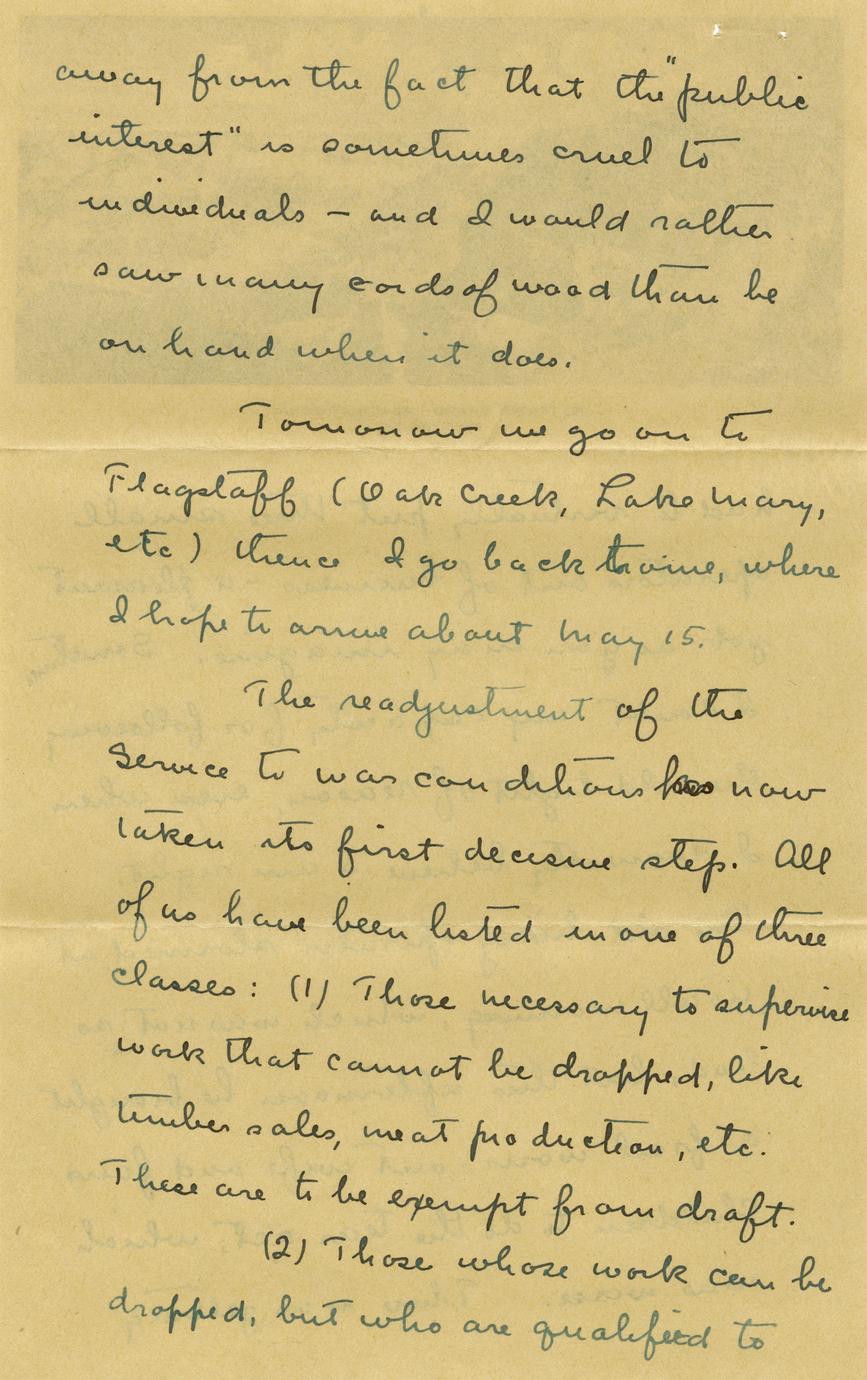 away from the fact that the "public
interest" is sometimes cruel to
individuals – and I would rather
saw many cords of wood than be
on hand when it does.
Tomorrow we go on to
Flagstaff (Oak Creek, Lake Mary,
etc) thence I go back home, where
I hope to arrive about May 15.
The readjustment of the
Service to war conditions has now
taken its first decisive step. All
of us have been listed in one of three
classes: (1) Those necessary to supervise
work that cannot be dropped, like
timber sales, meat production, etc.
These are to be exempt from draft.
(2) Those whose work can be
dropped, but who are qualified to